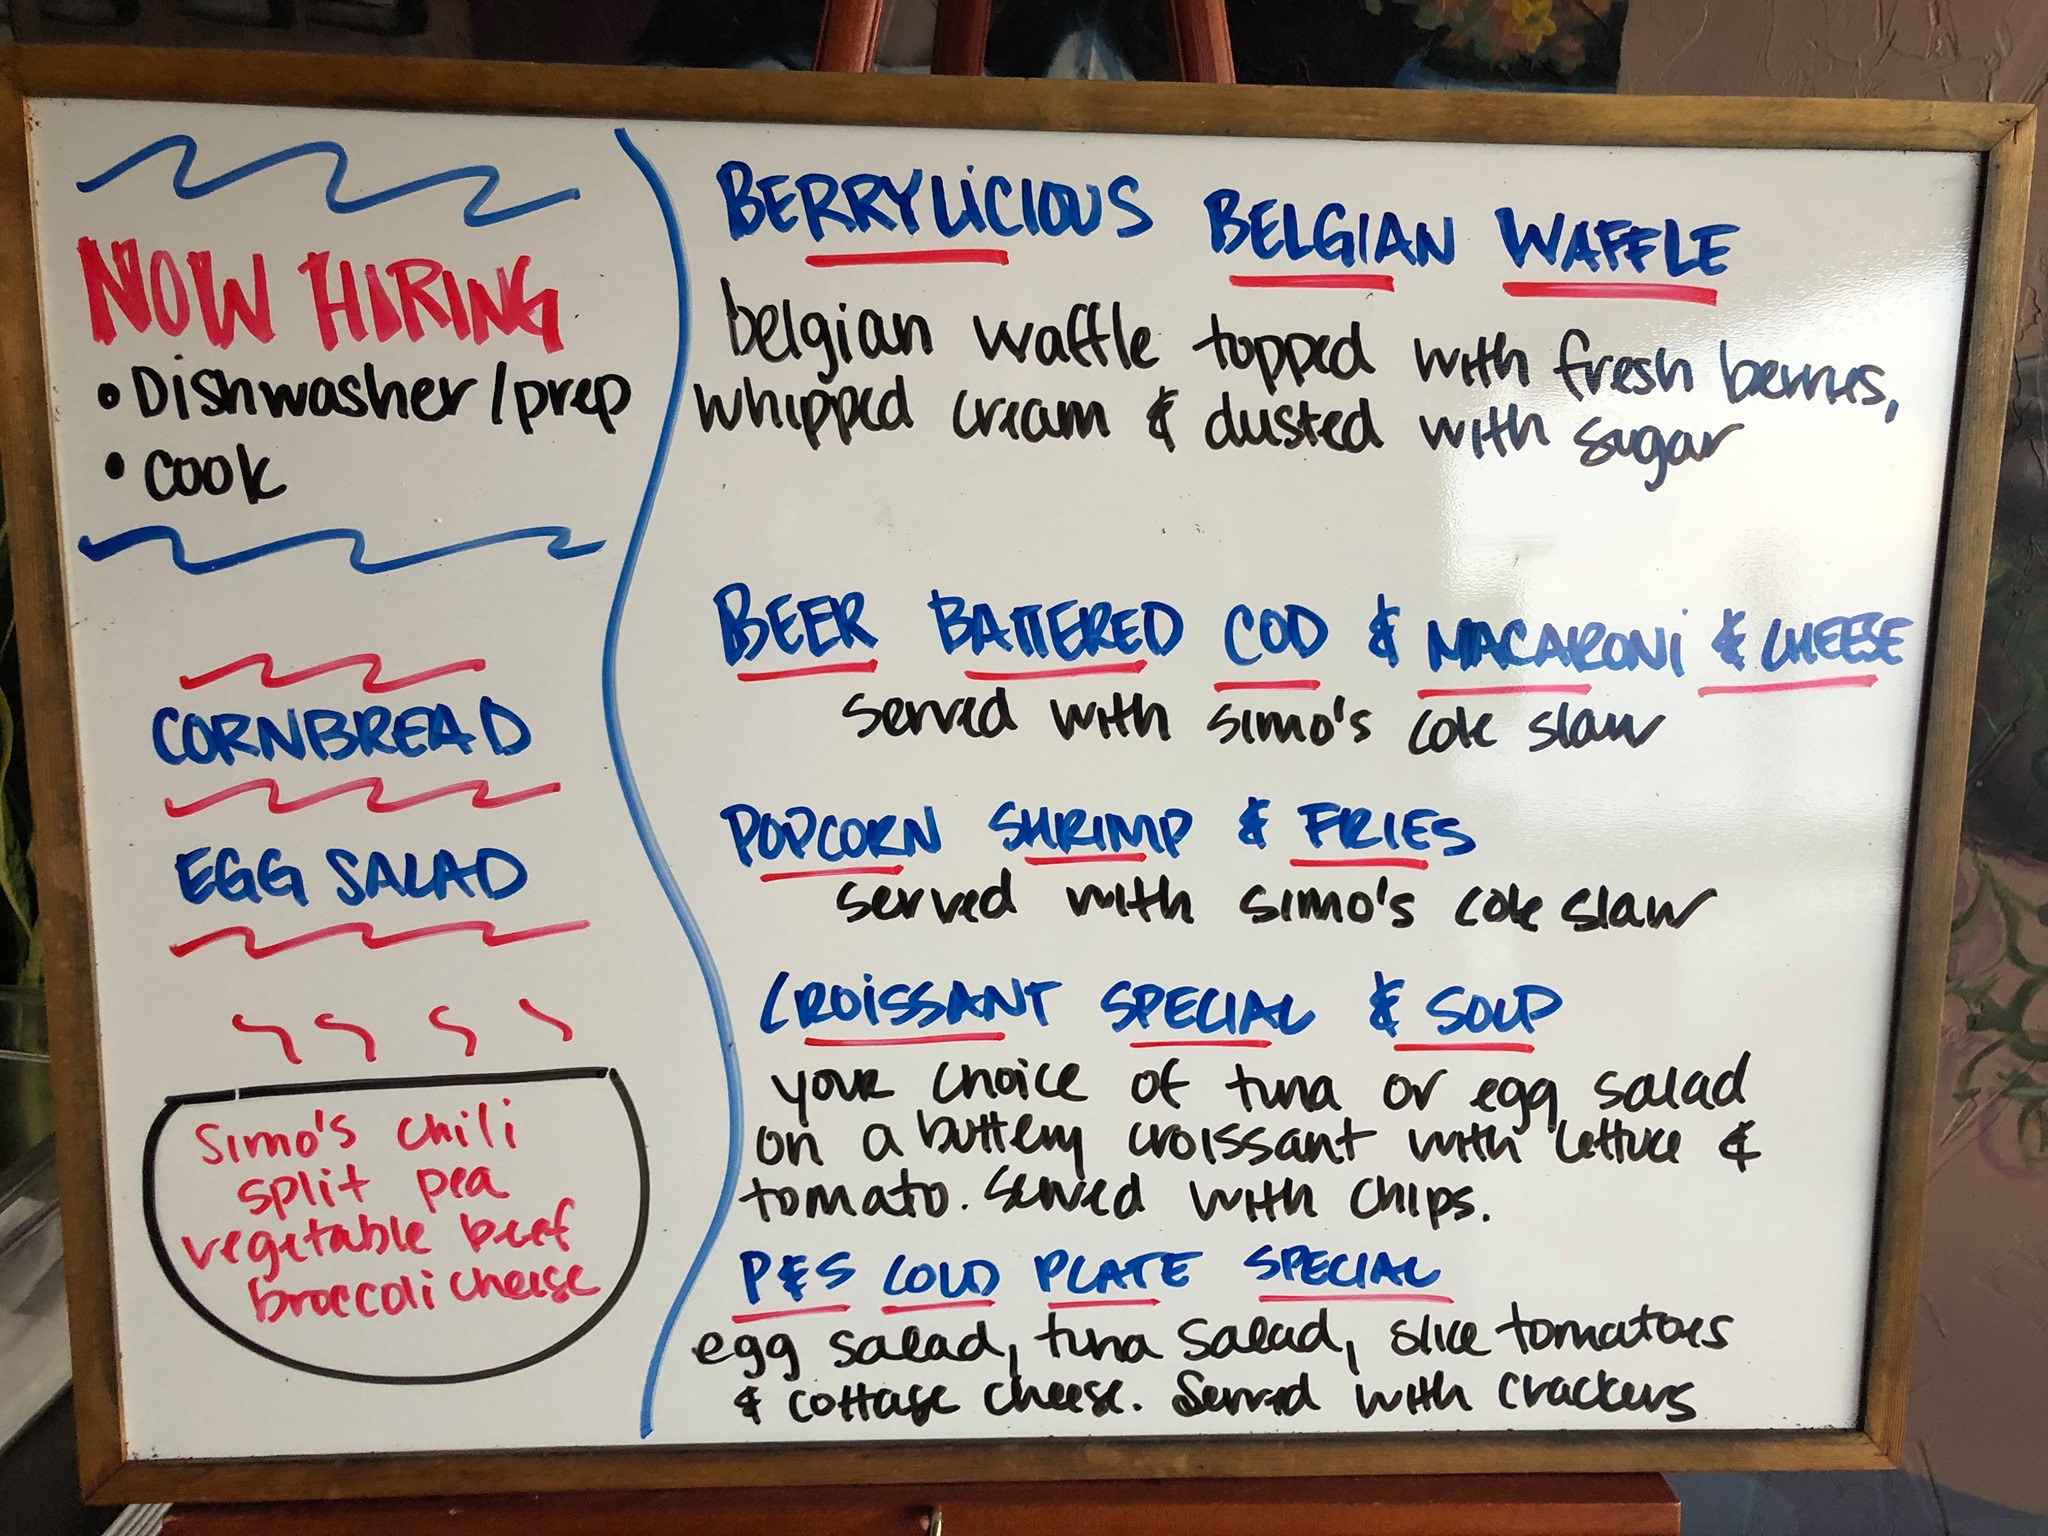 NOW HIRING
• Dishwasher/prep
• cook
CORNBREAD
EGG SALAD
simo's chili
split pea
vegetable beef
broccoli cheese
BERRYLICIOUS BELGIAN WAFFLE
belgian waffle topped with fresh berries,
whipped cream & dusted with sugar
BEER BATTERED COD & MACARONI & CHEESE
served with simo's cole slaw
POPCORN SHRIMP & FRIES
served with simo's cole slaw
CROISSANT SPECIAL & SOUP
your choice of tuna or egg salad
on a buttery croissant with lettuce &
tomato. Served with chips.
P&S COLD PLATE SPECIAL
egg salad, tuna salad, slice tomatoes
& cottage cheese. Served with crackers